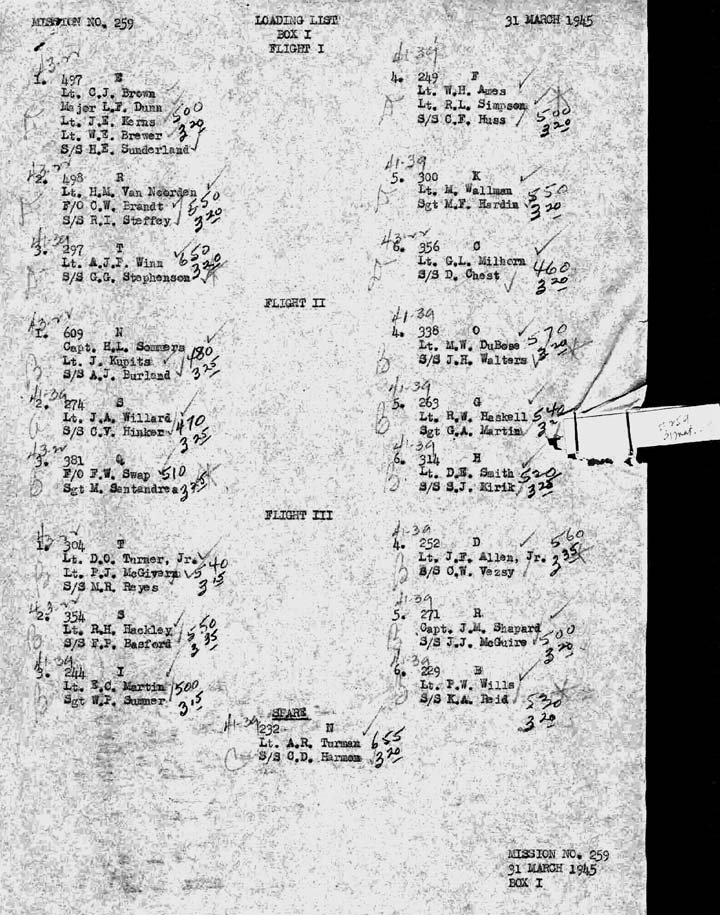 MISSION NO. 259
LOADING LIST
31 MARCH 1945
BOX I
FLIGHT I
43-22
1. 497 E
Lt. C.J. Brown
Major L.F. Dunn
Lt. J.E. Kerns 500
Lt. W.E. Brewer 320
S/S H.E. Sunderland
2. 498 R
Lt. H.M. Van Noorden
F/O C.W. Brandt 550
S/S R.I. Steffey 320
41-39
3. 297 T
Lt. A.J.P. Winn 650
S/S G.G. Stephenson 320
41-39
4. 249 F
Lt. W.H. Ames
Lt. R.L. Simpson 500
S/S C.F. Huss 320
41-39
5. 300 K
Lt. M. Wallman 550
Sgt M.F. Hardin 320
43-22
6. 356 C
Lt. G.L. Milhorn 460
S/S D. Chest 320
FLIGHT II
43-22
1. 609 N
Capt. H.L. Sommers
Lt. J. Kupits 480
S/S A.J. Burland 325
41-39
2. 274 S
Lt. J.A. Willard 470
S/S C.V. Hinker 325
43-22
3. 381 Q
F/O F.W. Swap 510
Sgt M. Santandrea 325
41-39
4. 338 O
Lt. M.W. DuBose 570
S/S J.H. Walters 320
41-39
5. 263 G
Lt. R.W. Haskell 540
Sgt G.A. Martin
41-39
6. 314 H
Lt. D.E. Smith 520
S/S S.J. Kirik 325
FLIGHT III
1. 304 T
Lt. D.O. Turner, Jr.
Lt. P.J. McGivern 540
S/S M.R. Reyes 315
43-22
2. 354 S
Lt. R.H. Hackley 550
S/S F.P. Basford 335
41-39
3. 244 I
Lt. E.C. Martin 500
Sgt W.P. Sumner 315
41-39
4. 252 D 560
Lt. J.F. Allen, Jr. 335
S/S C.W. Vezsy
41-39
5. 271 R
Capt. J.M. Shapard
S/S J.J. McGuire 500
320
41-39
6. 229 B
Lt. P.W. Wills
S/S K.A. Reid 530
320
SPARE
41-39
232 N
Lt. A.R. Turman 655
S/S C.D. Harmon 320
MISSION NO. 259
31 MARCH 1945
BOX I